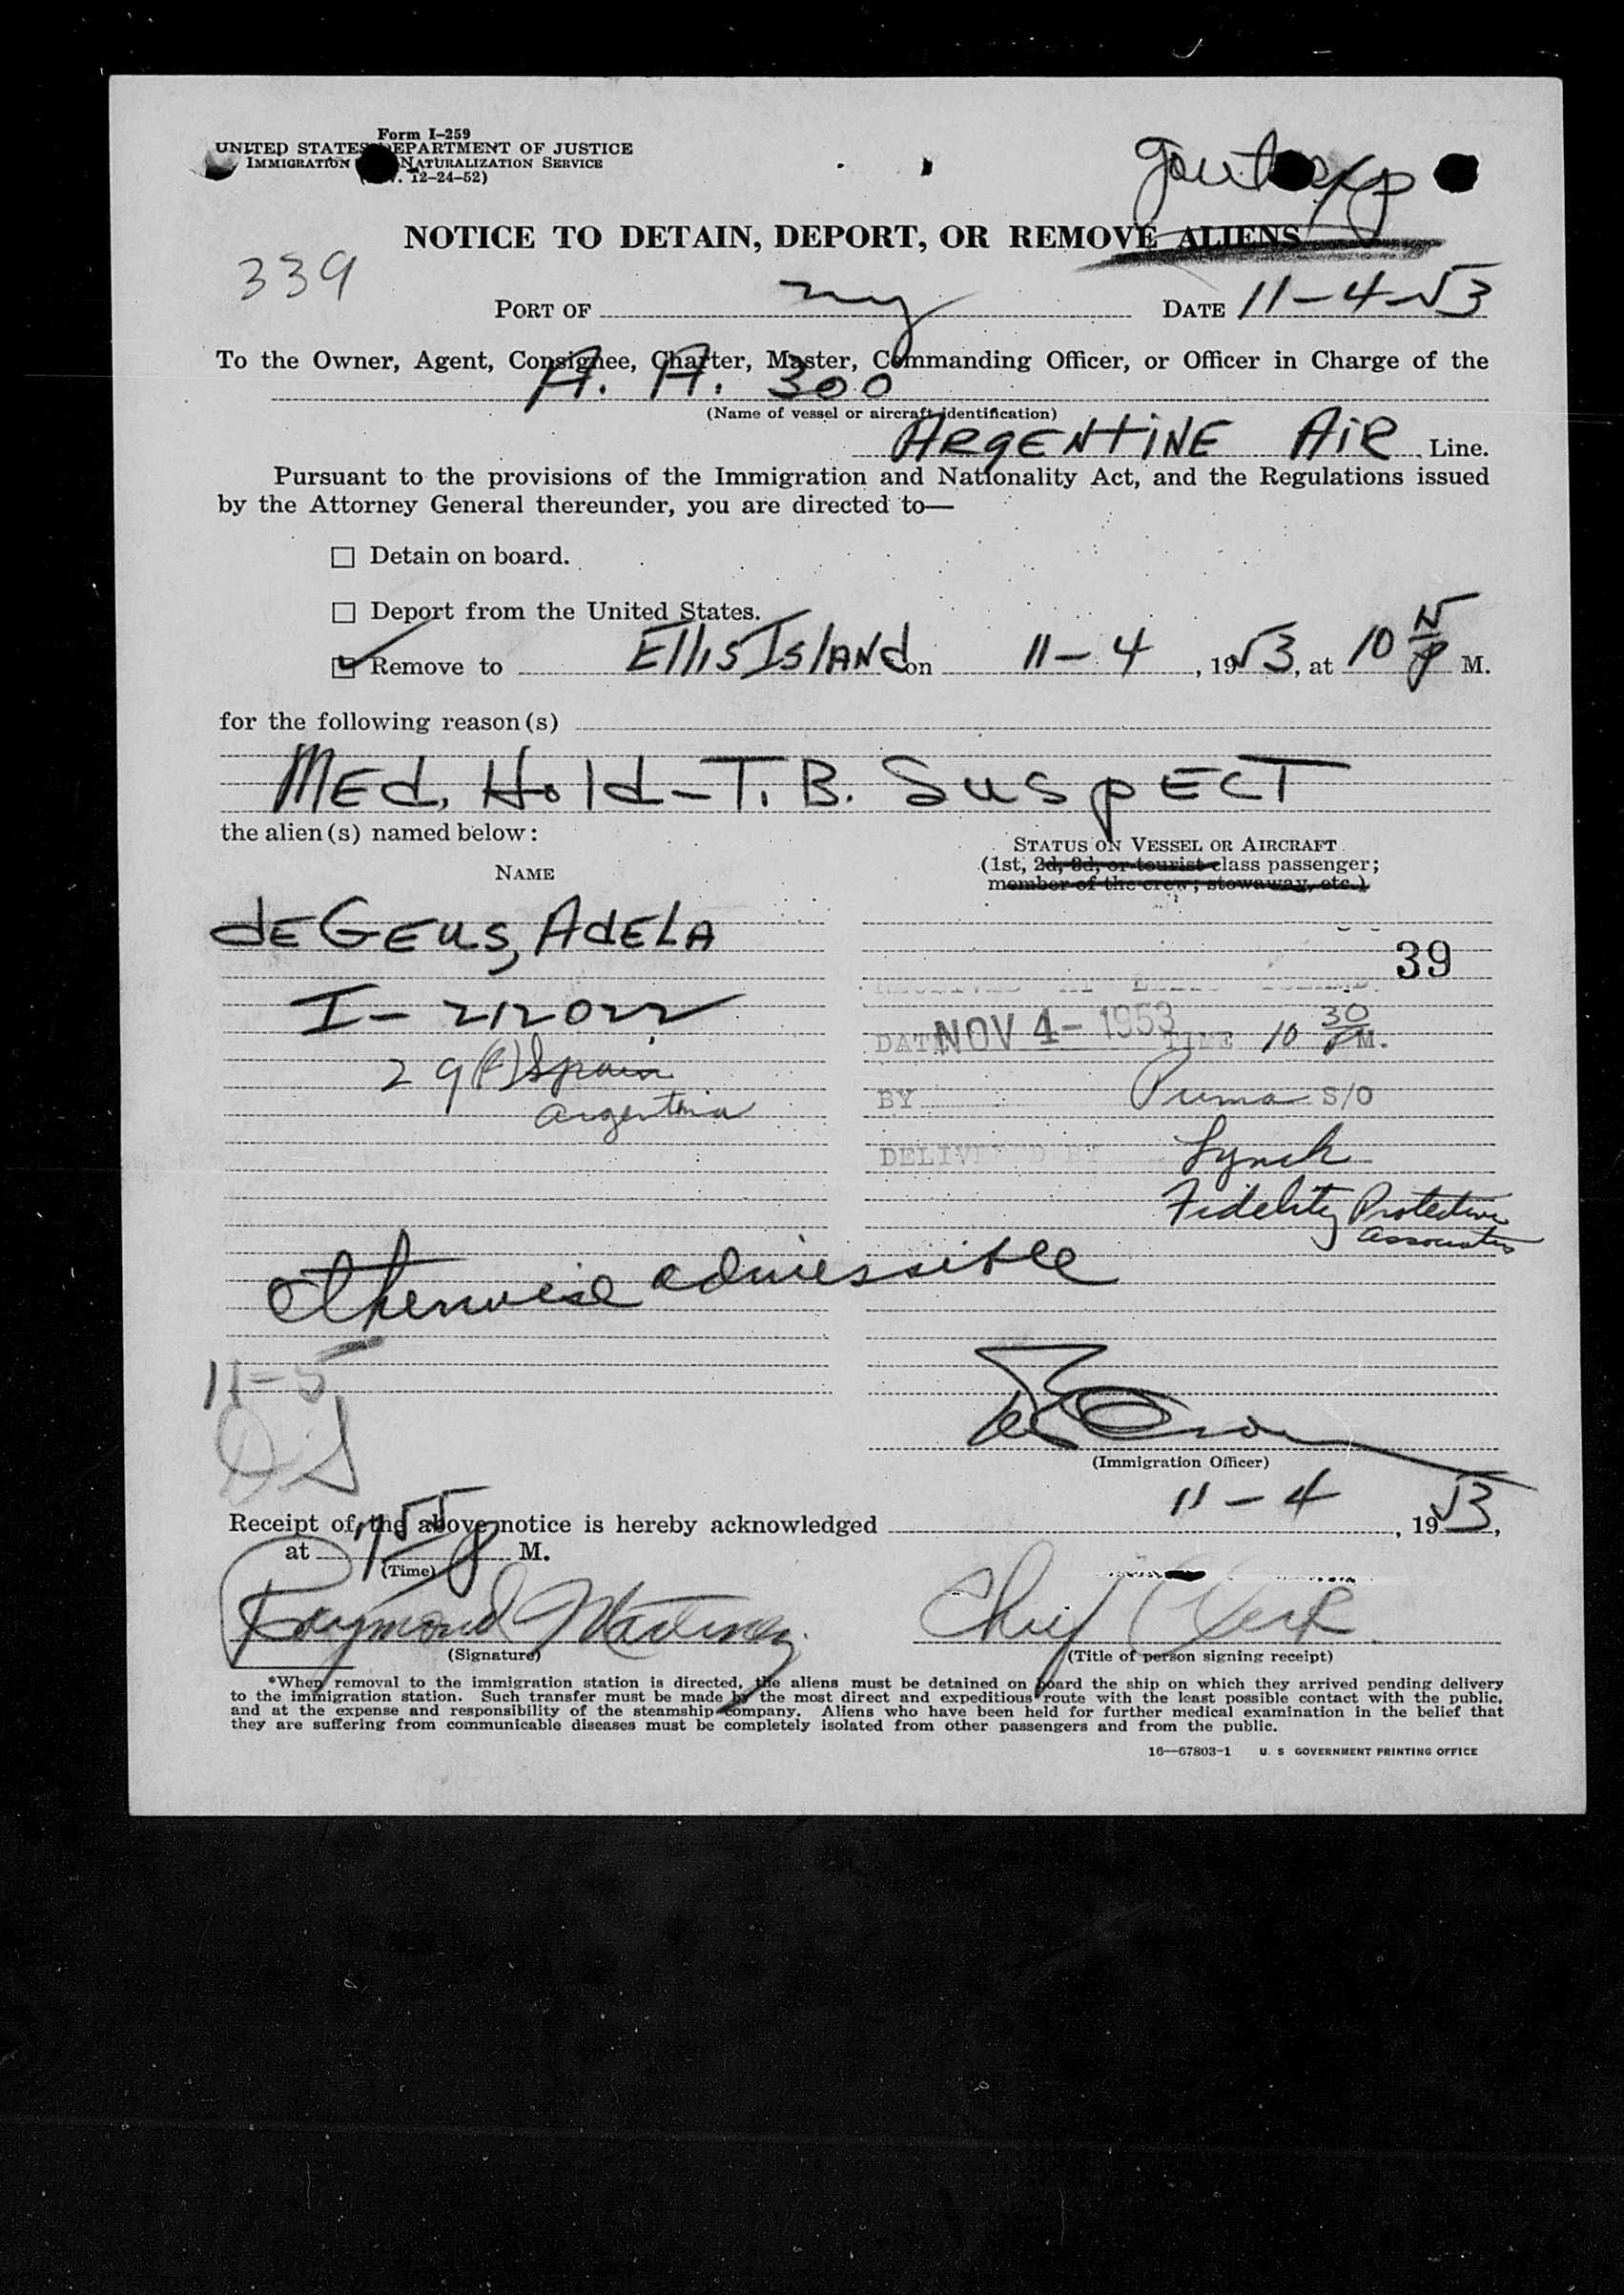 Form I-259
UNITED STATES DEPARTMENT OF JUSTICE
IMMIGRATION NATURALIZATION SERVICE
12-24-52)
NOTICE TO DETAIN, DEPORT, OR REMOVE ALIENS
339
PORT OF NY DATE 11-4-53
To the Owner, Agent, Consignee, Charter, Master, Commanding Officer, or Officer in Charge of the
A. A. 300
(Name of vessel or aircraft identification)
ARgENtiNE AiR Line.
Pursuant to the provisions of the Immigration and Nationality Act, and the Regulations issued
by the Attorney General thereunder, you are directed to—
☐ Detain on board.
☐ Deport from the United States.
☑ Remove to Ellis Island on 11-4, 1953, at 10 P M.
for the following reason(s)
MEd. Hold-T.B. SuspECT
the alien(s) named below:
NAME
STATUS ON VESSEL OR AIRCRAFT
(1st, 2d, 3d, or tourist class passenger;
member of the crew; stowaway, etc.)
dE GEus, AdELA
39
I-212022
DATE NOV 4- 1953 TIME 10 30 P M.
29 (F) Spain
Argentina
BY Puma S/O
DELIVERED BY Lynch
Fidelity Protective
Associates
otherwise admissible
11-5
(Immigration Officer)
11-4
Receipt of the above notice is hereby acknowledged , 1953,
at 7 55 P M.
(Time)
Raymond Martinez Chief Clerk
(Signature) (Title of person signing receipt)
*When removal to the immigration station is directed, the aliens must be detained on board the ship on which they arrived pending delivery
to the immigration station. Such transfer must be made by the most direct and expeditious route with the least possible contact with the public,
and at the expense and responsibility of the steamship company. Aliens who have been held for further medical examination in the belief that
they are suffering from communicable diseases must be completely isolated from other passengers and from the public.
16—67803-1 U. S GOVERNMENT PRINTING OFFICE